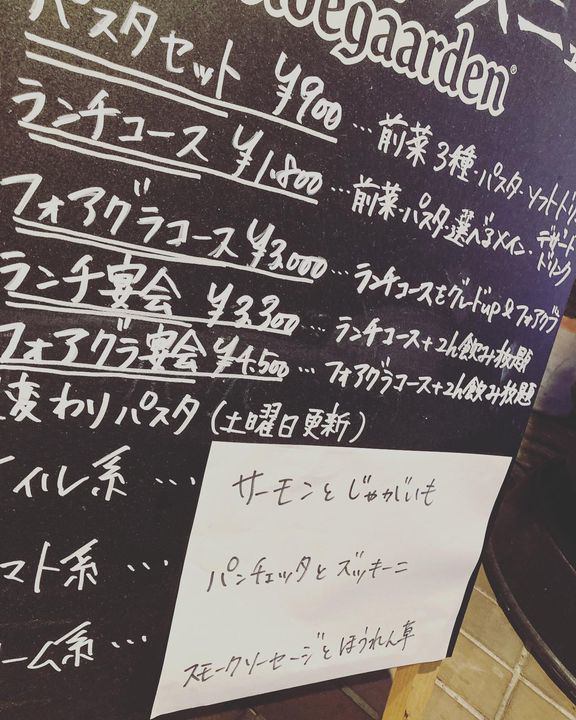 egaarden
パスタセット ¥900 … 前菜3種・パスタ・ソフトドリ
ランチコース ¥1,800 … 前菜・パスタ・選べるメイン・デザート ドリンク
フォアグラコース ¥3,000 … ランチコースをグレードup&フォアグラ
ランチ宴会 ¥3,300 … ランチコース+2h飲み放題
フォアグラ宴会 ¥4,500 … フォアグラコース+2h飲み放題
変わりパスタ (土曜日更新)
イル系 … サーモンとじゃがいも
マト系 … パンチェッタとズッキーニ
ーム系 … スモークソーセージとほうれん草